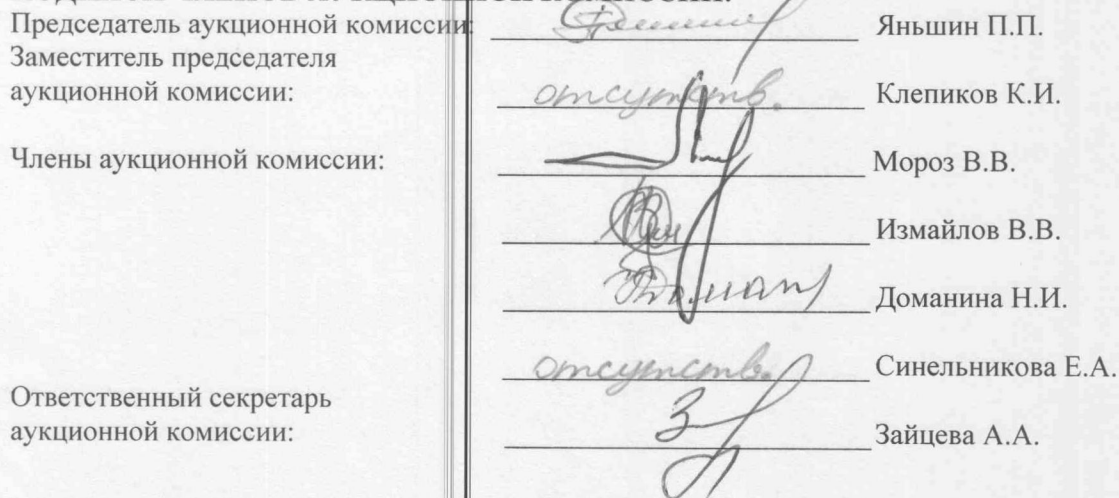 Председатель аукционной комиссии: Яньшин П.П.
Заместитель председателя
аукционной комиссии: отсутств. Клепиков К.И.
Члены аукционной комиссии: Мороз В.В.
Измайлов В.В.
Доманина Н.И.
отсутств. Синельникова Е.А.
Ответственный секретарь
аукционной комиссии: Зайцева А.А.